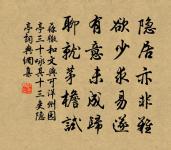 隱居亦非難
欲少求易遂
有意未成歸
聊就茅檐試
蘇轍和文與可洋州園
亭三十詠其十三吏隱
亭詞典網集